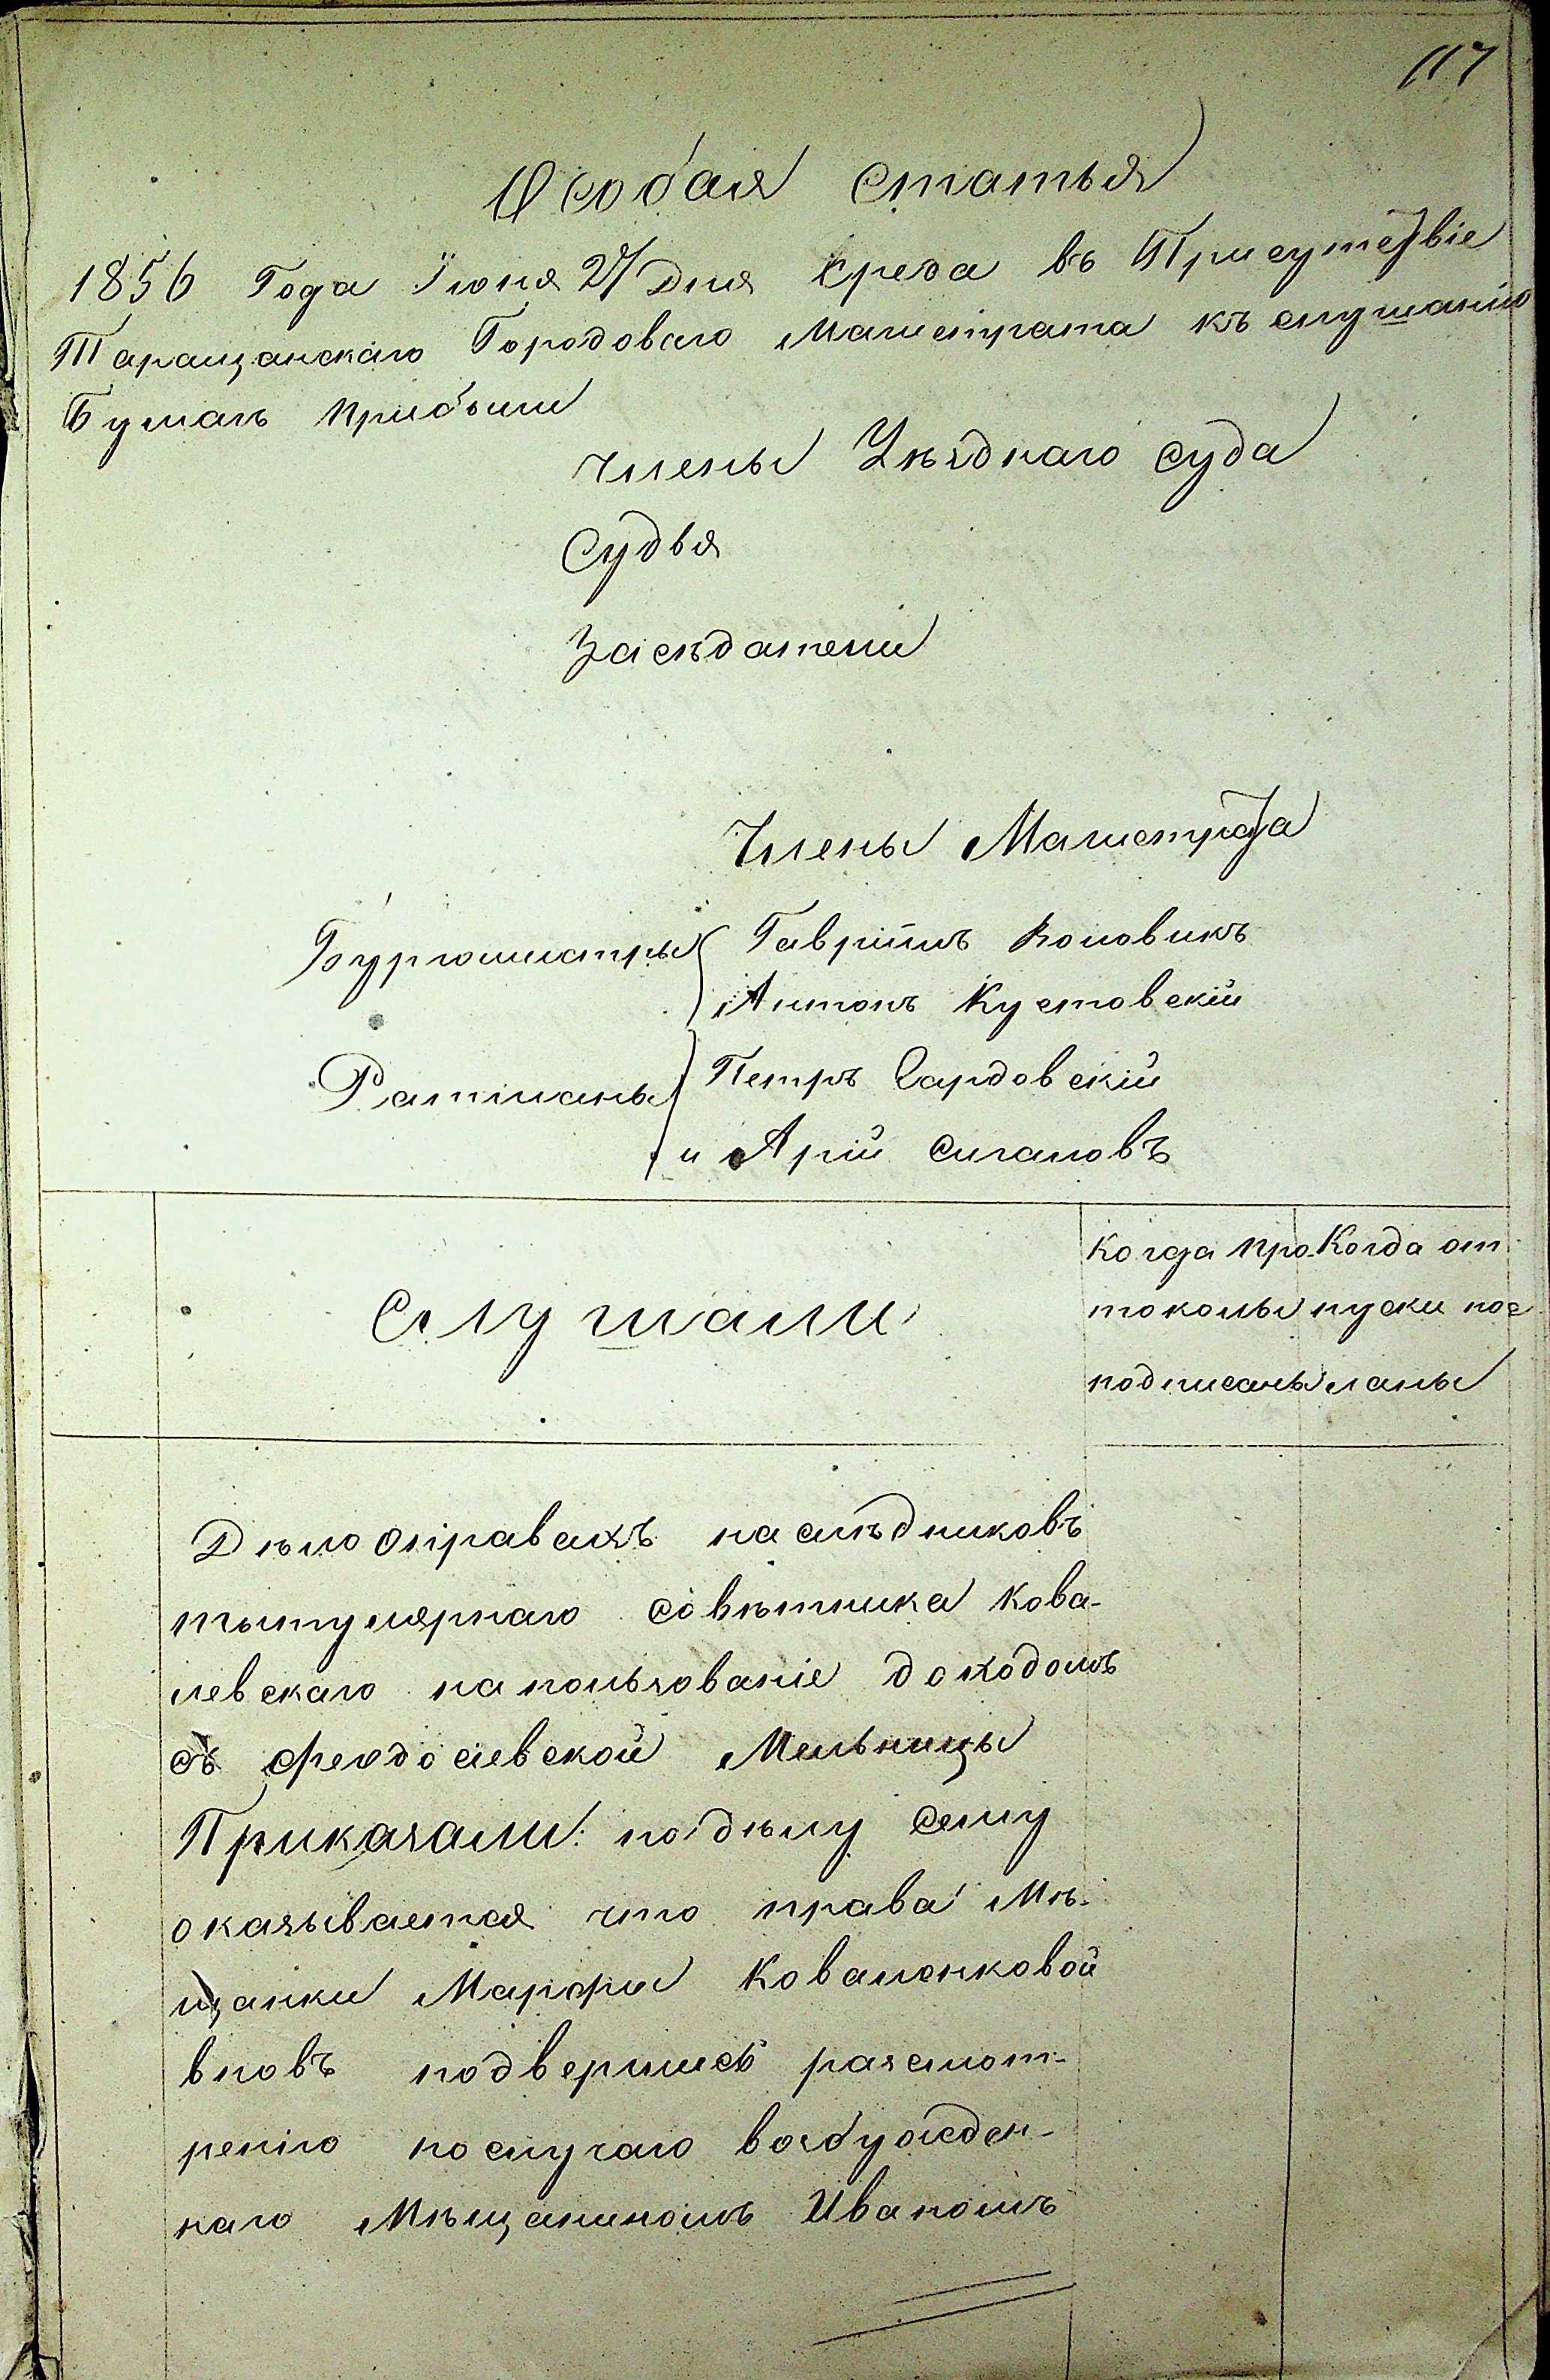 117
Особая статья
1856 Года Іюня 27 Дня среда въ Присутствіе
Таращанскаго Городоваго Магистрата къ слушанію
Бумагъ прибыли
члены Уѣзднаго суда
Судья
Засѣдатели
Члены Магистрата
Бургомистры Гавріилъ Воловикъ
Антонъ Кустовскій
Ратманы Петръ Сардовскій
и Арій Сигаловъ
Слушали
Когда про-
токолы
подписаны
Когда от
пуски пос
ланы
Дѣло оправахъ наслѣдниковъ
тытулярнаго совѣтника Кова-
левскаго напользованіе доходомъ
съ Феодосіевской Мельницы
Приказали: подѣлу сему
оказывается что права Мѣ-
щанки Марфы Коваленковой
вновъ подверглись разсмот-
ренію послучаю возбужден-
наго Мѣщаниномъ Иваномъ